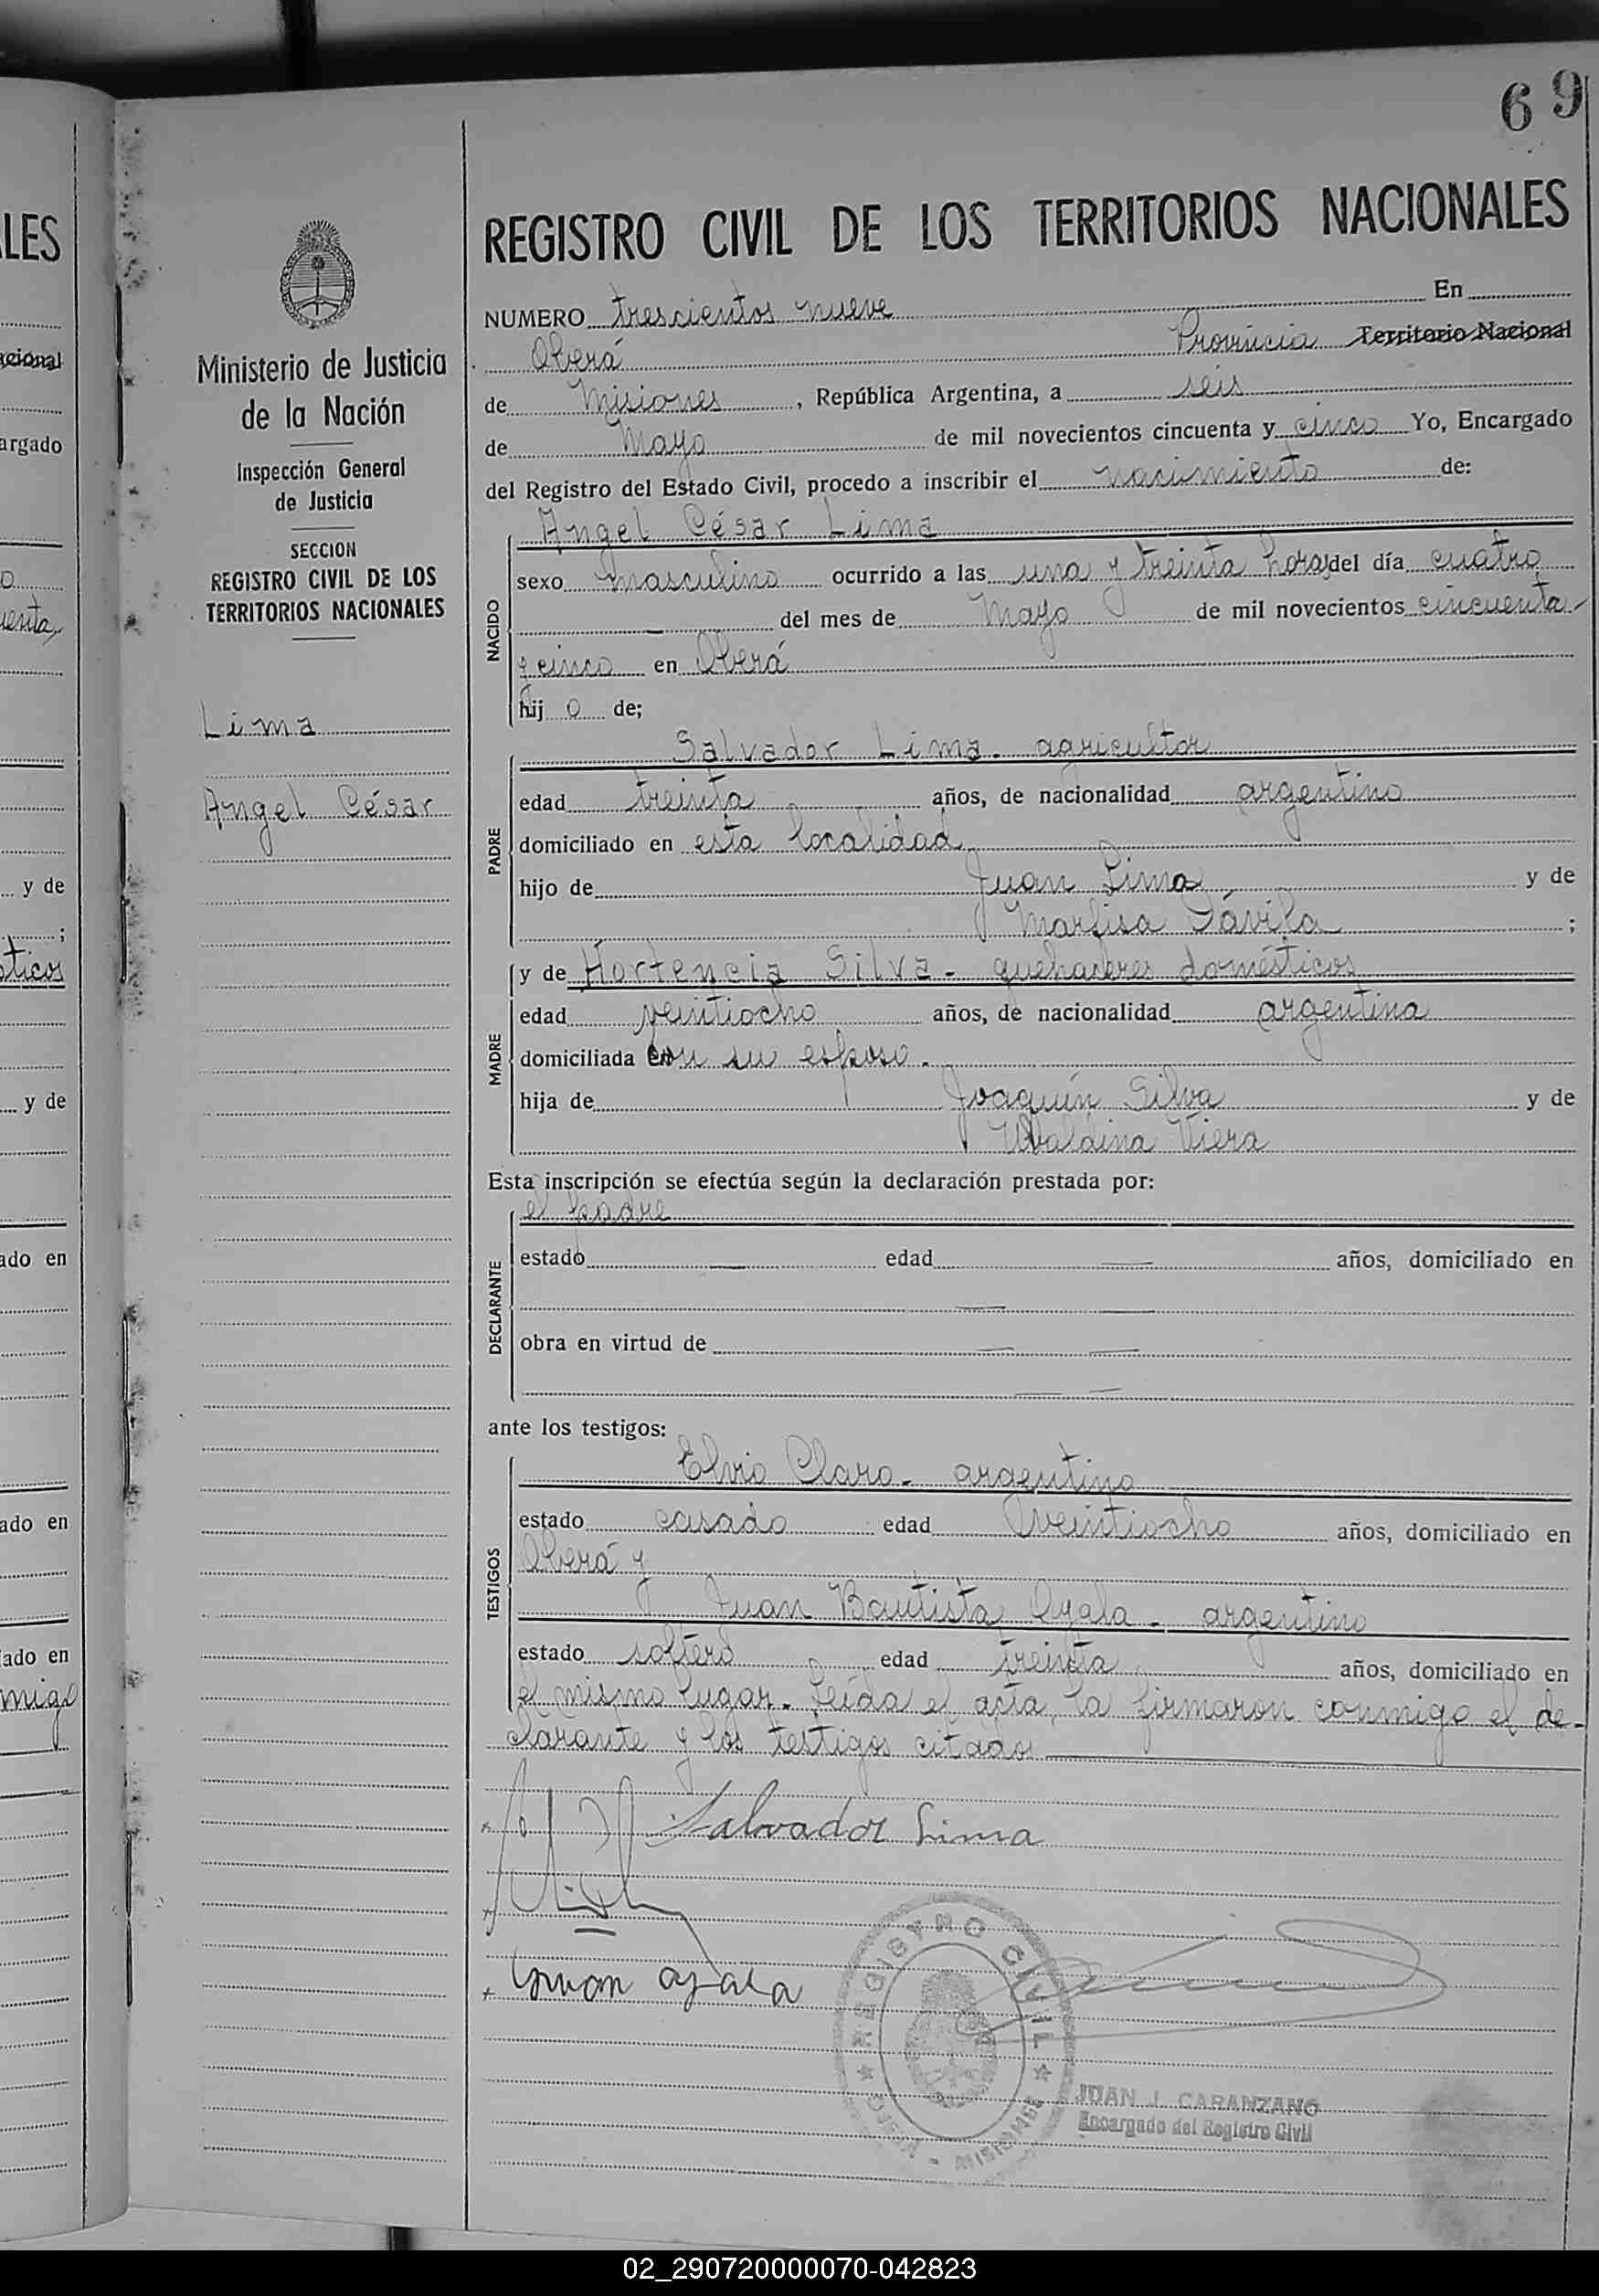 69
REGISTRO CIVIL DE LOS TERRITORIOS NACIONALES
NUMERO trescientos nueve En
Oberá Provincia Territorio Nacional
de Misiones, República Argentina, a seis
de Mayo de mil novecientos cincuenta y cinco Yo, Encargado
del Registro del Estado Civil, procedo a inscribir el nacimiento de:
NACIDO
Angel César Lima
sexo masculino ocurrido a las una y treinta horas del día cuatro
del mes de Mayo de mil novecientos cincuenta
y cinco en Oberá
hijo de;
PADRE
Salvador Lima - agricultor
edad treinta años, de nacionalidad argentino
domiciliado en esta localidad
hijo de Juan Lima y de
Marfisa Dávila ;
MADRE
y de Hortencia Silva - quehaceres domésticos
edad veintiocho años, de nacionalidad argentina
domiciliada con su esposo.
hija de Joaquín Silva y de
Ubaldina Viera
Esta inscripción se efectúa según la declaración prestada por:
DECLARANTE
el padre
estado — edad — años, domiciliado en
— —
obra en virtud de — —
— —
ante los testigos:
TESTIGOS
Elvio Claro - argentino
estado casado edad veintiocho años, domiciliado en
Oberá y
Juan Bautista Ayala - argentino
estado soltero edad treinta años, domiciliado en
el mismo lugar. Leída el acta, la firmaron conmigo el de-
clarante y los testigos citados
Salvador Lima
Juan Ayala
REGISTRO CIVIL
MISIONES
JUAN J. CARANZANO
Encargado del Registro Civil
Ministerio de Justicia
de la Nación
Inspección General
de Justicia
SECCION
REGISTRO CIVIL DE LOS
TERRITORIOS NACIONALES
Lima
Angel César
LES
argado
y de
;
y de
ado en
ado en
ado en
02_290720000070-042823